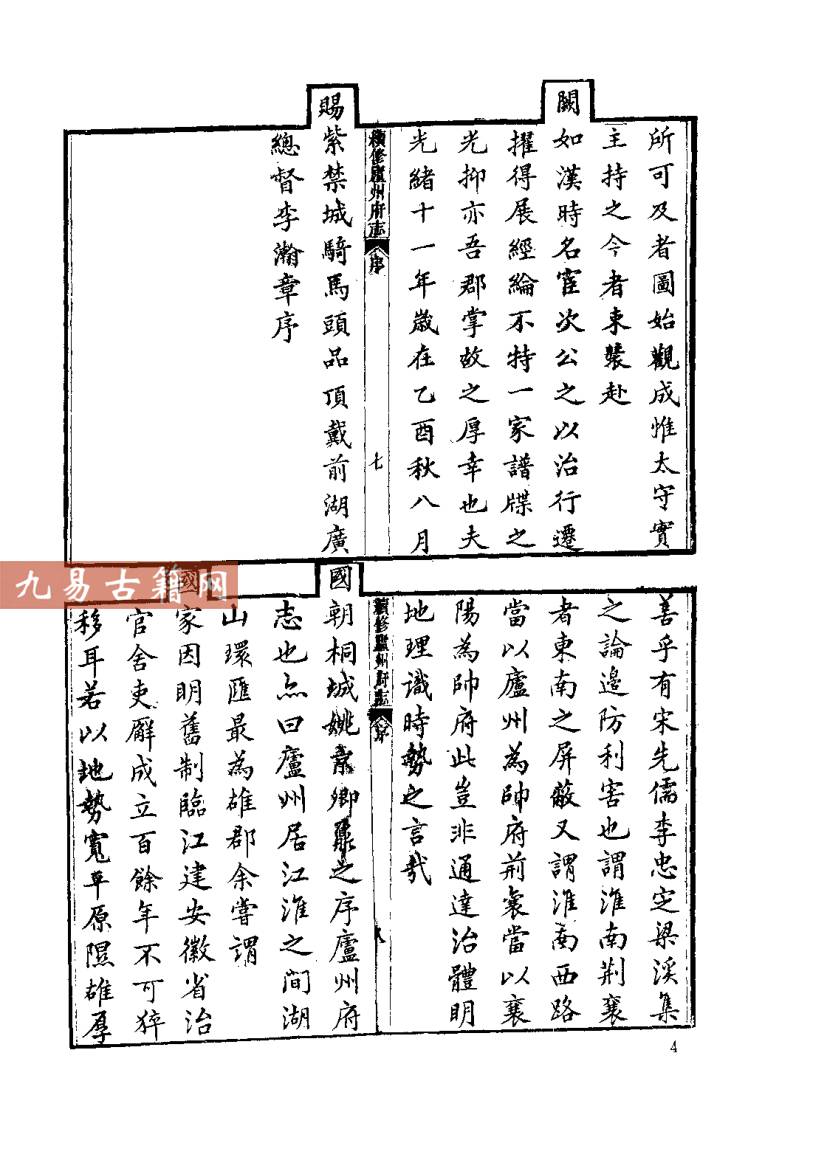 所可及者圖始觀成惟太守實
主持之今者束裝赴
闕如漢時名宦次公之以治行遷
擢得展經綸不特一家譜牒之
光抑亦吾郡掌故之厚幸也夫
光緒十一年歲在乙酉秋八月
續修廬州府志 序 七
賜紫禁城騎馬頭品頂戴前湖廣
總督李瀚章序
善乎有宋先儒李忠定梁溪集
之論邊防利害也謂淮南荆襄
者東南之屏蔽又謂淮南西路
當以廬州為帥府荆襄當以襄
陽為帥府此豈非通達治體明
地理識時勢之言哉
續修廬州府志 序 八
國朝桐城姚 卿鼐之序廬州府
志也亦曰廬州居江淮之間湖
山環匯最為雄郡余嘗謂
國家因明舊制臨江建安徽省治
官舍吏廨成立百餘年不可猝
移耳若以地勢寬平原隰雄厚
九易古籍网
4